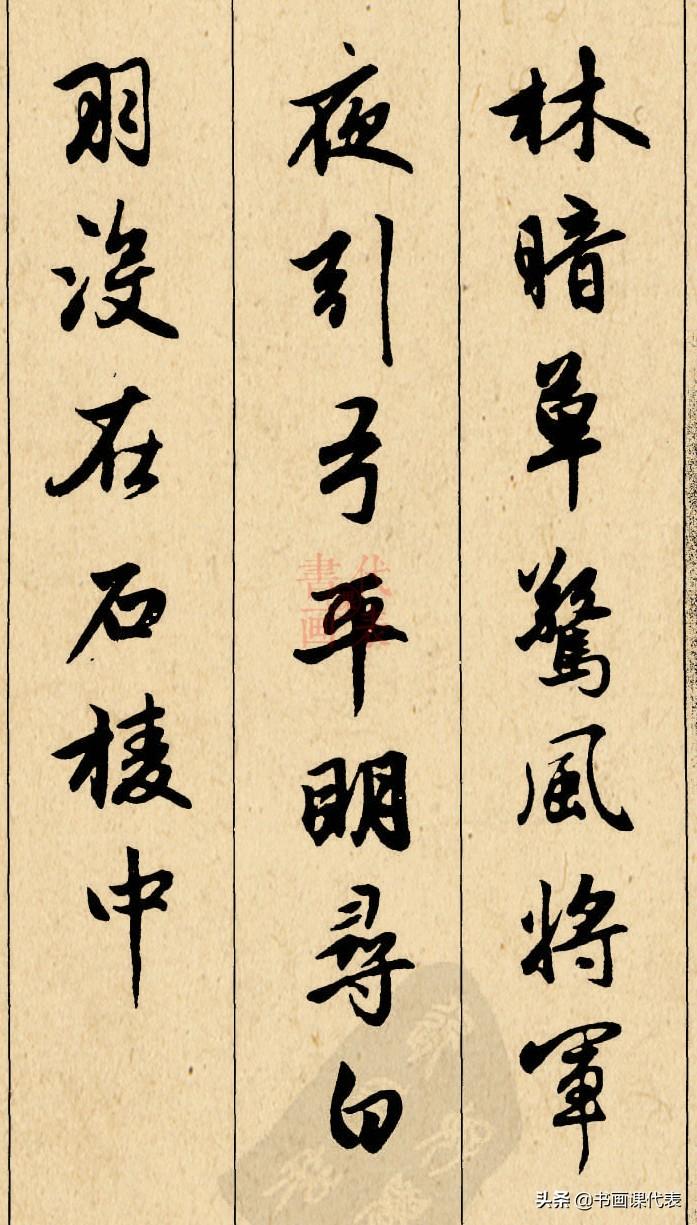 林暗草驚風將軍
夜引弓平明尋白
羽沒在石棱中
書画
代表
头条 @书画课代表